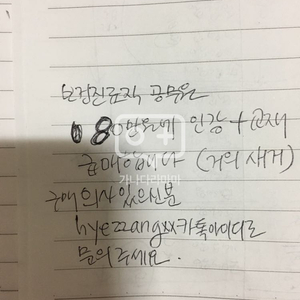 보건진료직 공무원
80만원에 인강 + 교재
급매합니다 (거의 새거)
구매의사 있으신분
hyezzangxx카톡아이디로
문의주세요.
가나다라마마